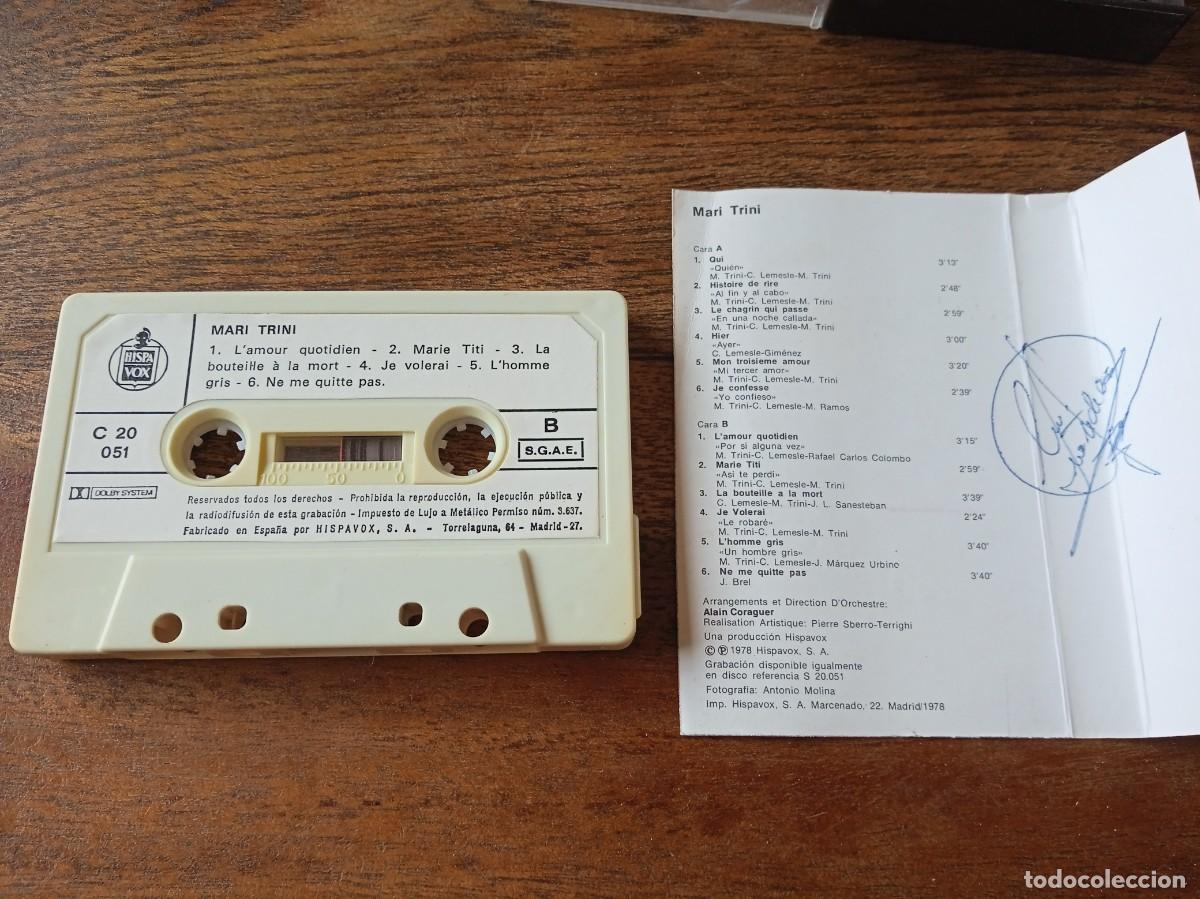 HISPA
VOX
MARI TRINI
1. L'amour quotidien - 2. Marie Titi - 3. La
bouteille à la mort - 4. Je volerai - 5. L'homme
gris - 6. Ne me quitte pas.
C 20
051
B
S.G.A.E.
DOLBY SYSTEM
100 50 0
Reservados todos los derechos - Prohibida la reproducción, la ejecución pública y
la radiodifusión de esta grabación - Impuesto de Lujo a Metálico Permiso núm. 3.637.
Fabricado en España por HISPAVOX, S. A. - Torrelaguna, 64 - Madrid-27.
Mari Trini
Cara A
1. Qui 3'13"
«Quién»
M. Trini-C. Lemesle-M. Trini
2. Histoire de rire 2'48"
«Al fin y al cabo»
M. Trini-C. Lemesle-M. Trini
3. Le chagrin qui passe 2'59"
«En una noche callada»
M. Trini-C. Lemesle-M. Trini
4. Hier 3'00"
«Ayer»
C. Lemesle-Giménez
5. Mon troisieme amour 3'20"
«Mi tercer amor»
M. Trini-C. Lemesle-M. Trini
6. Je confesse 2'39"
«Yo confieso»
M. Trini-C. Lemesle-M. Ramos
Cara B
1. L'amour quotidien 3'15"
«Por si alguna vez»
M. Trini-C. Lemesle-Rafael Carlos Colombo
2. Marie Titi 2'59"
«Asi te perdi»
M. Trini-C. Lemesle-M. Trini
3. La bouteille a la mort 3'39"
C. Lemesle-M. Trini-J. L. Sanesteban
4. Je Volerai 2'24"
«Le robaré»
M. Trini-C. Lemesle-M. Trini
5. L'homme gris 3'40"
«Un hombre gris»
M. Trini-C. Lemesle-J. Márquez Urbino
6. Ne me quitte pas 3'40"
J. Brel
Arrangements et Direction D'Orchestre:
Alain Coraguer
Realisation Artistique: Pierre Sberro-Terrighi
Una producción Hispavox
© ℗ 1978 Hispavox, S. A.
Grabación disponible igualmente
en disco referencia S 20.051
Fotografía: Antonio Molina
Imp. Hispavox, S. A. Marcenado, 22. Madrid/1978
todocoleccion